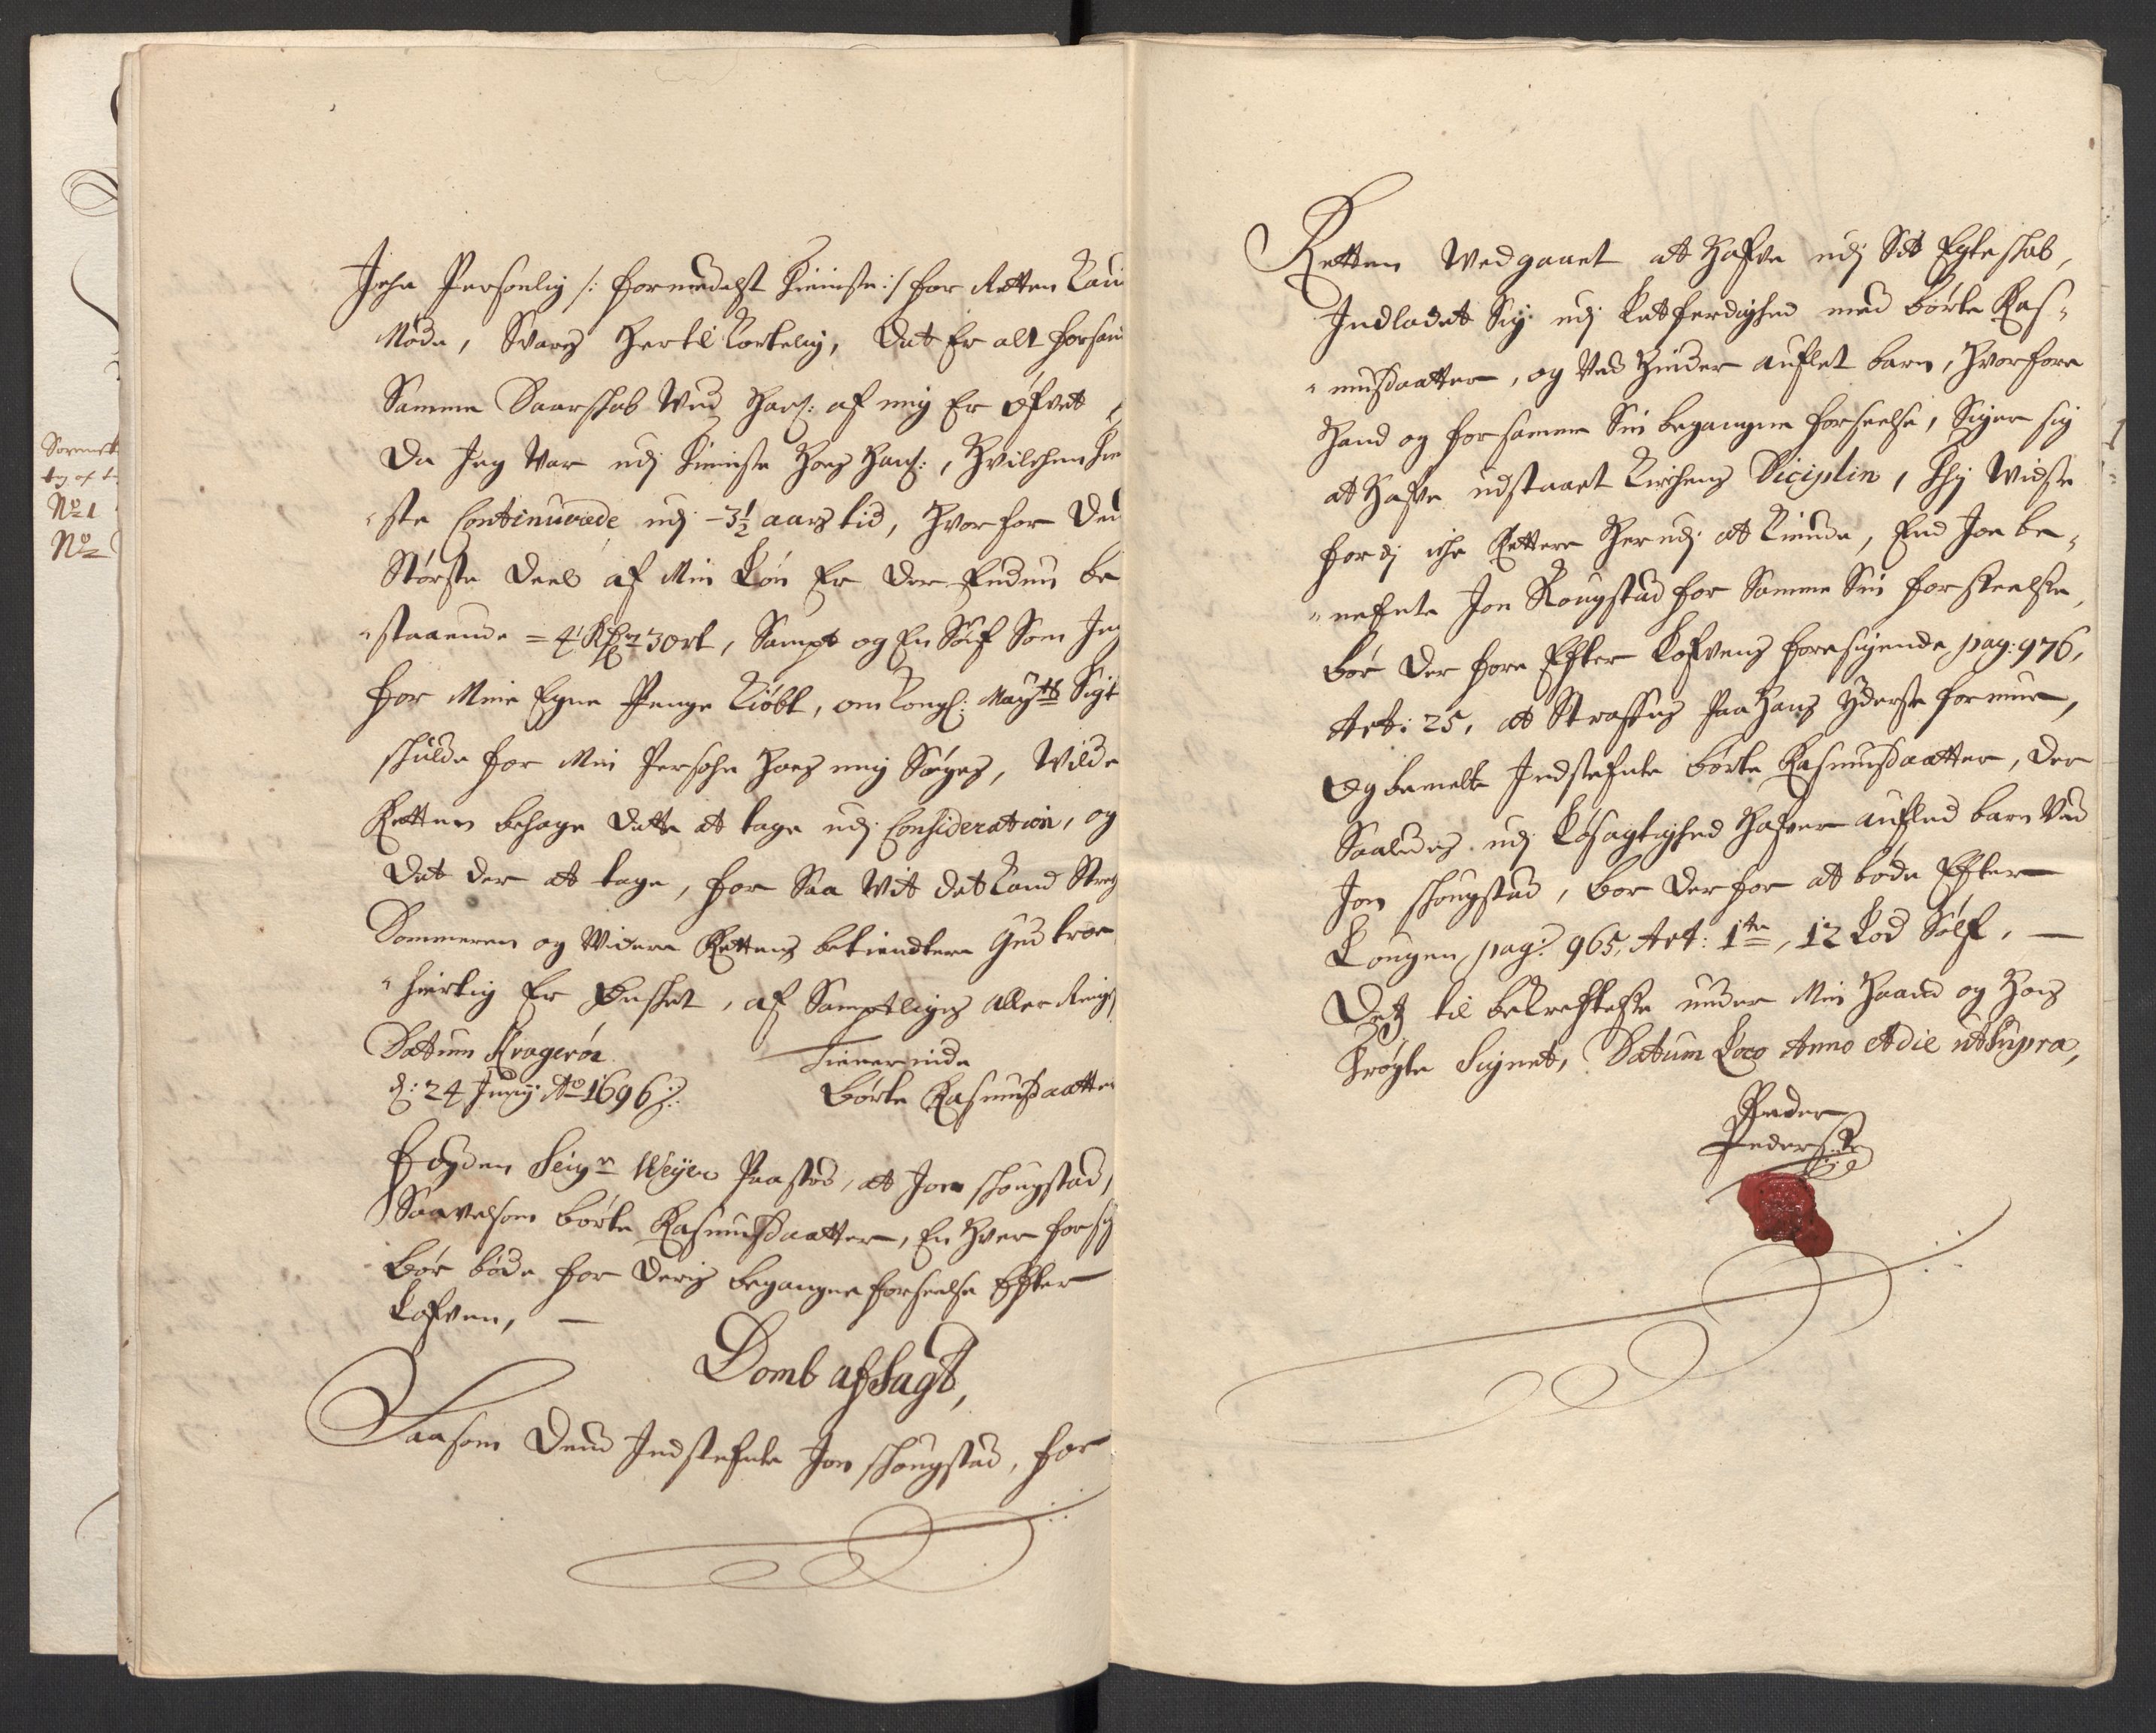 Sorensk
No 1
No
Iche Personlig /: formedelst Tieniste :/ for Retten Kan
Møde, Svares hertil Kortelig, Det Er alt forsan
Samme Daarskab Med Hans: af mig Er øfvet,
Da Jeg Var udj Tieniste hoes Hans:, Hvilchen Tie
ste Continuerede udj - 3½ aars tid, hvorfor Den
Største Deel af Min Løn Er der Endnu be
staaende = 4 Rdr 3 ort, Sampt og En Søuf Som Jeg
for Mine Egne Penge Kiøbt, om Kongl: Maytts Sigt
schulde for Min Persohn hoes mig Søges, Wilde
Retten behage dette at tage udj Consideration, og
Det der at tage, for Saa Wit det Kand Strech
Dommeren og Widere Rettens betiendtere Gud troe
hiertig Er Ønsket, af Samptliges aller Ringes
Datum Kragerøe Tienerinde
d: 24 Junij Ao 1696 Børte Rasmusdaatter
Fogden Seigr Weyer Paastod, at Jon Schougstad,
Saavelsom Børte Rasmusdaatter, En hver for sig
Bør bøde for deris begangne forseelse Effter
Lofven, —
Domb afsagt,
Saasom Dend Indstefnte Jon Schougstad, for
Retten Wedgaaet at hafve udj Sit Egteskab,
Indladet Sig udj Letferdighed med Børte Ras-
musdaatter, og Ved hinder auflet barn, hvorfore
Hand og for samme Sin begangne forseelse, Siger sig
at hafve udstaaet Kirchens Diciplin, Thj Widste
fordj iche Rettere herudj at Kiende, End Joe be-
nefnte Jon Skougstad for Samme Sin forseelse,
bør derfore Effter Lofvens foresigende pag: 976,
Art: 25, at Straffes paa hans yderste formue,
Og bemelte Indstefnte Børte Rasmusdaatter, der
Saaledes udj Løsagtighed hafver auflled barn Ved
Jon Schougstad, bør derfor at bøde Effter
Lougen, pag: 965, Art: 1te, 12 Lod Sølf, —
Det til bekrefftelse under Min Haand og hoes
Trøgte Signet, Datum Loco Anno et die ut Supra,
Peder
Pedersen